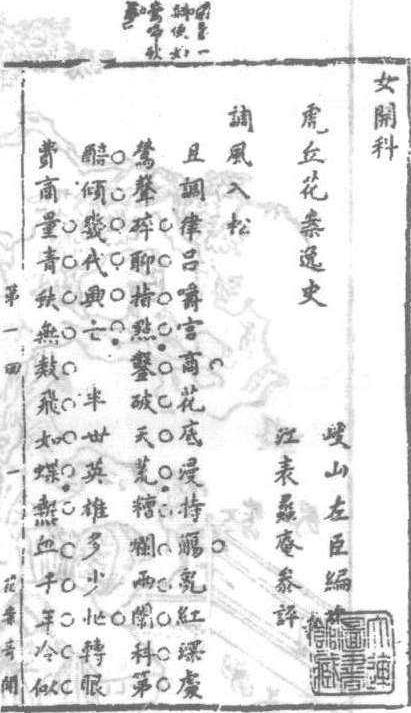 女開科
虎丘花案逸史
岐山左臣編次
江表蠡庵參評
調風入松
且調律呂嚼宮商花底漫持觴亂紅深處
鶯聲碎聊指點鑿破天荒糟爛兩闈科第
醅傾幾代興亡　半世英雄多少忙轉眼
費商量青蚨無數飛如蝶熱血千年冷似
第一回　一　花案奇聞